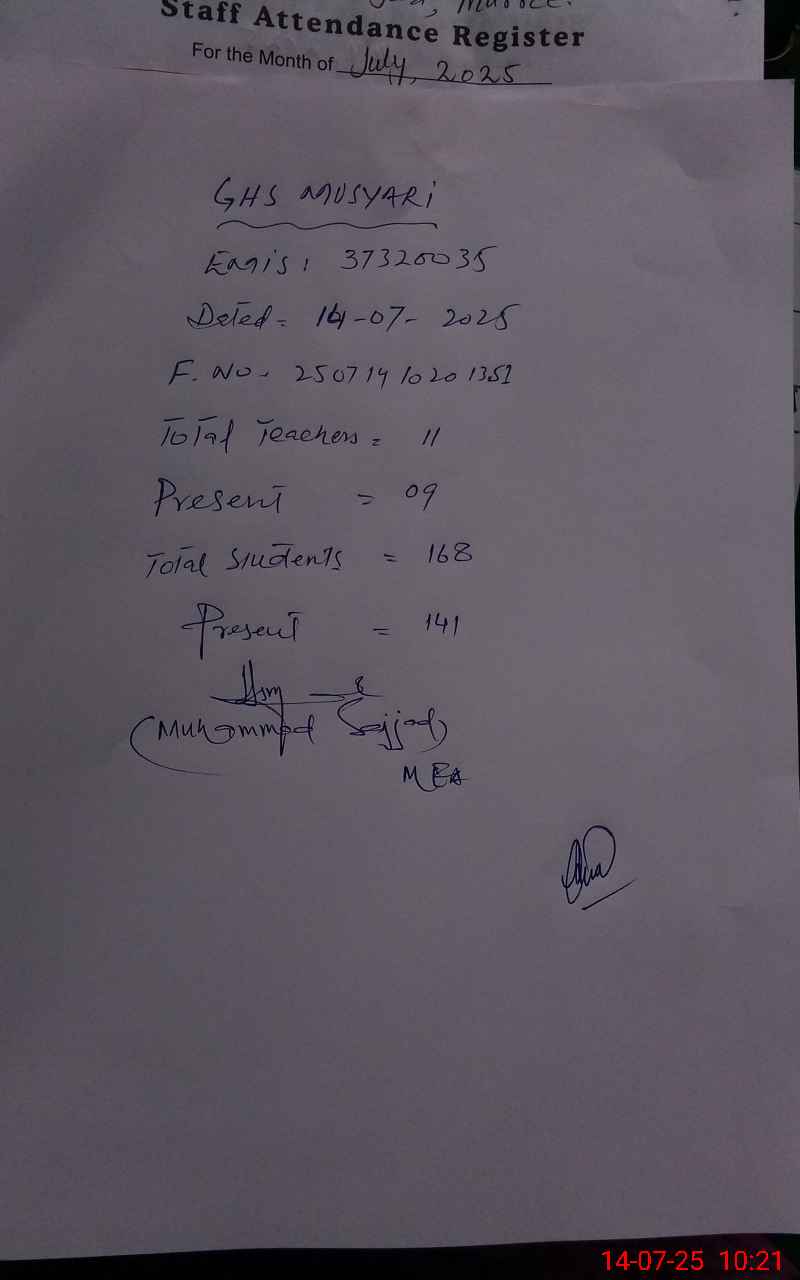 Staff Attendance Register
For the Month of July, 2025
GHS MUSYARi
Emis: 37320035
Dated = 14-07-2025
F. No. 25071410201351
Total Teachers = 11
Present = 09
Total Students = 168
Present = 141
(Muhammad Sajjad)
MEA
14-07-25 10:21